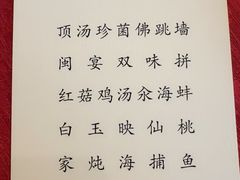 顶汤珍菌佛跳墙
闽宴双味拼
红菇鸡汤汆海蚌
白玉映仙桃
家炖海捕鱼